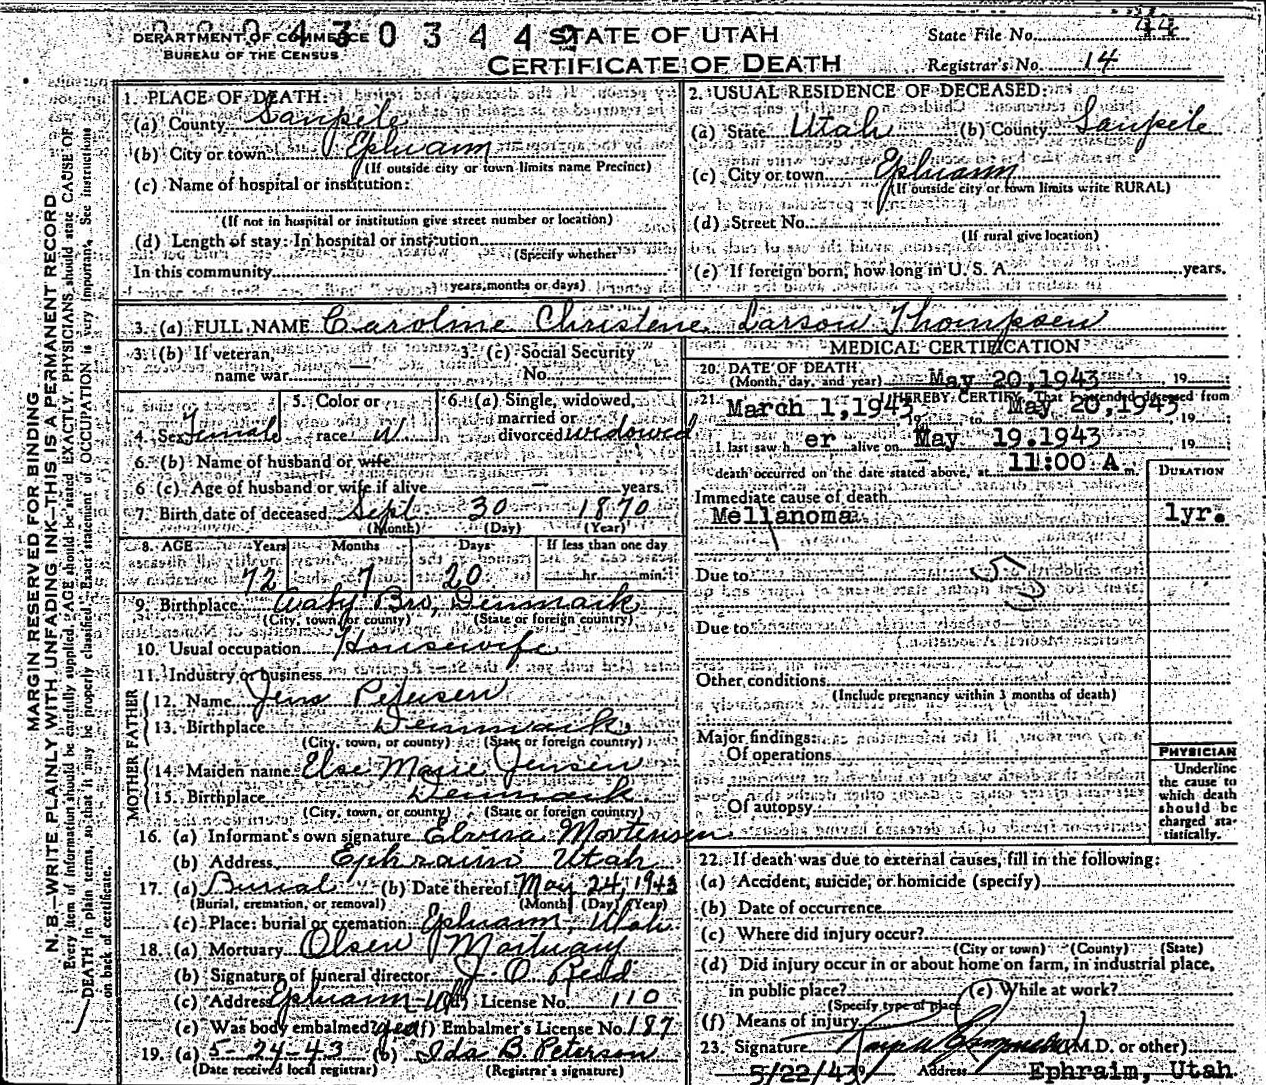 DEPARTMENT OF COMMERCE
BUREAU OF THE CENSUS
4 3 0 3 4 4
STATE OF UTAH
CERTIFICATE OF DEATH
State File No. 44
Registrar's No. 14
MARGIN RESERVED FOR BINDING
N. B.—WRITE PLAINLY WITH UNFADING INK—THIS IS A PERMANENT RECORD
Every item of information should be carefully supplied. AGE should be stated EXACTLY. PHYSICIANS should state CAUSE OF
DEATH in plain terms, so that it may be properly classified. Exact statement of OCCUPATION is very important. See instructions
on back of certificate.
1. PLACE OF DEATH:
(a) County Sanpete
(b) City or town Ephraim
(If outside city or town limits name Precinct)
(c) Name of hospital or institution:
(If not in hospital or institution give street number or location)
(d) Length of stay: In hospital or institution
(Specify whether
In this community
years, months or days)
2. USUAL RESIDENCE OF DECEASED:
(a) State Utah (b) County Sanpete
(c) City or town Ephraim
(If outside city or town limits write RURAL)
(d) Street No.
(If rural give location)
(e) If foreign born, how long in U. S. A. years.
3. (a) FULL NAME Caroline Christene Larson Thompsen
3. (b) If veteran,
name war —
3. (c) Social Security
No.
4. Sex Female
5. Color or
race W
6. (a) Single, widowed,
married or
divorced widowed
6. (b) Name of husband or wife
6 (c) Age of husband or wife if alive — years.
7. Birth date of deceased Sept. 30 1870
(Month) (Day) (Year)
8. AGE Years Months Days If less than one day
72 7 20 hr. min.
9. Birthplace Bro, Denmark
(City, town, or county) (State or foreign country)
10. Usual occupation Housewife
11. Industry or business
FATHER
12. Name Jens Petersen
13. Birthplace Denmark
(City, town, or county) (State or foreign country)
MOTHER
14. Maiden name Else Marie Jensen
15. Birthplace Denmark
(City, town, or county) (State or foreign country)
16. (a) Informant's own signature Elvira Mortensen
(b) Address Ephraim Utah
17. (a) Burial (b) Date thereof May 24, 1943
(Burial, cremation, or removal) (Month) (Day) (Year)
(c) Place: burial or cremation Ephraim, Utah
18. (a) Mortuary Olsen Mortuary
(b) Signature of funeral director J. O. Redd
(c) Address Ephraim-Ut (d) License No. 110
(e) Was body embalmed? yes (f) Embalmer's License No. 187
19. (a) 5-24-43 (b) Ida B. Peterson
(Date received local registrar) (Registrar's signature)
MEDICAL CERTIFICATION
20. DATE OF DEATH
(Month, day, and year) May 20,1943, 19
21. I HEREBY CERTIFY, That I attended deceased from
March 1,1943, 19 to May 20,1943, 19
I last saw h er alive on May 19.1943, 19
death occurred on the date stated above, at 11:00 A m.
DURATION
Immediate cause of death
Mellanoma 1yr.
Due to
Due to
Other conditions
(Include pregnancy within 3 months of death)
Major findings:
Of operations
Of autopsy
PHYSICIAN
Underline
the cause to
which death
should be
charged sta-
tistically.
22. If death was due to external causes, fill in the following:
(a) Accident, suicide, or homicide (specify)
(b) Date of occurrence
(c) Where did injury occur?
(City or town) (County) (State)
(d) Did injury occur in or about home on farm, in industrial place,
in public place? (e) While at work?
(Specify type of place)
(f) Means of injury
23. Signature (M.D. or other)
5/22/43 Address Ephraim, Utah